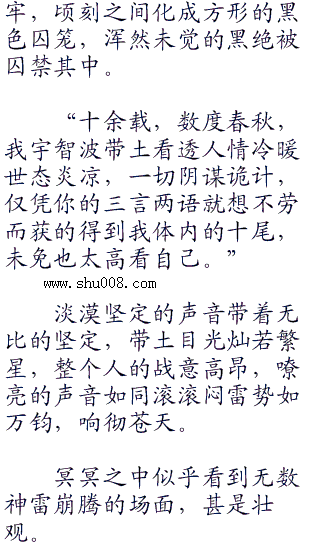 牢，顷刻之间化成方形的黑
色囚笼，浑然未觉的黑绝被
囚禁其中。
“十余载，数度春秋，
我宇智波带土看透人情冷暖
世态炎凉，一切阴谋诡计，
仅凭你的三言两语就想不劳
而获的得到我体内的十尾，
未免也太高看自己。”
www.shu008.com
淡漠坚定的声音带着无
比的坚定，带土目光灿若繁
星，整个人的战意高昂，嘹
亮的声音如同滚滚闷雷势如
万钧，响彻苍天。
冥冥之中似乎看到无数
神雷崩腾的场面，甚是壮
观。